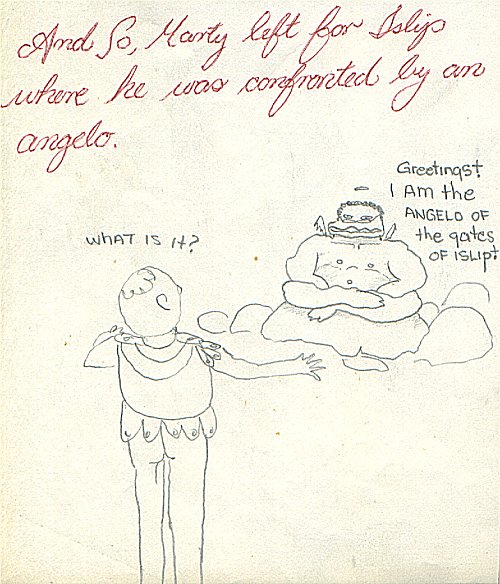 And So, Marty left for Islip
where he was confronted by an
angelo.
Greetings!
I AM the
ANGELO OF
the gates
OF ISLIP!
WHAT IS It?